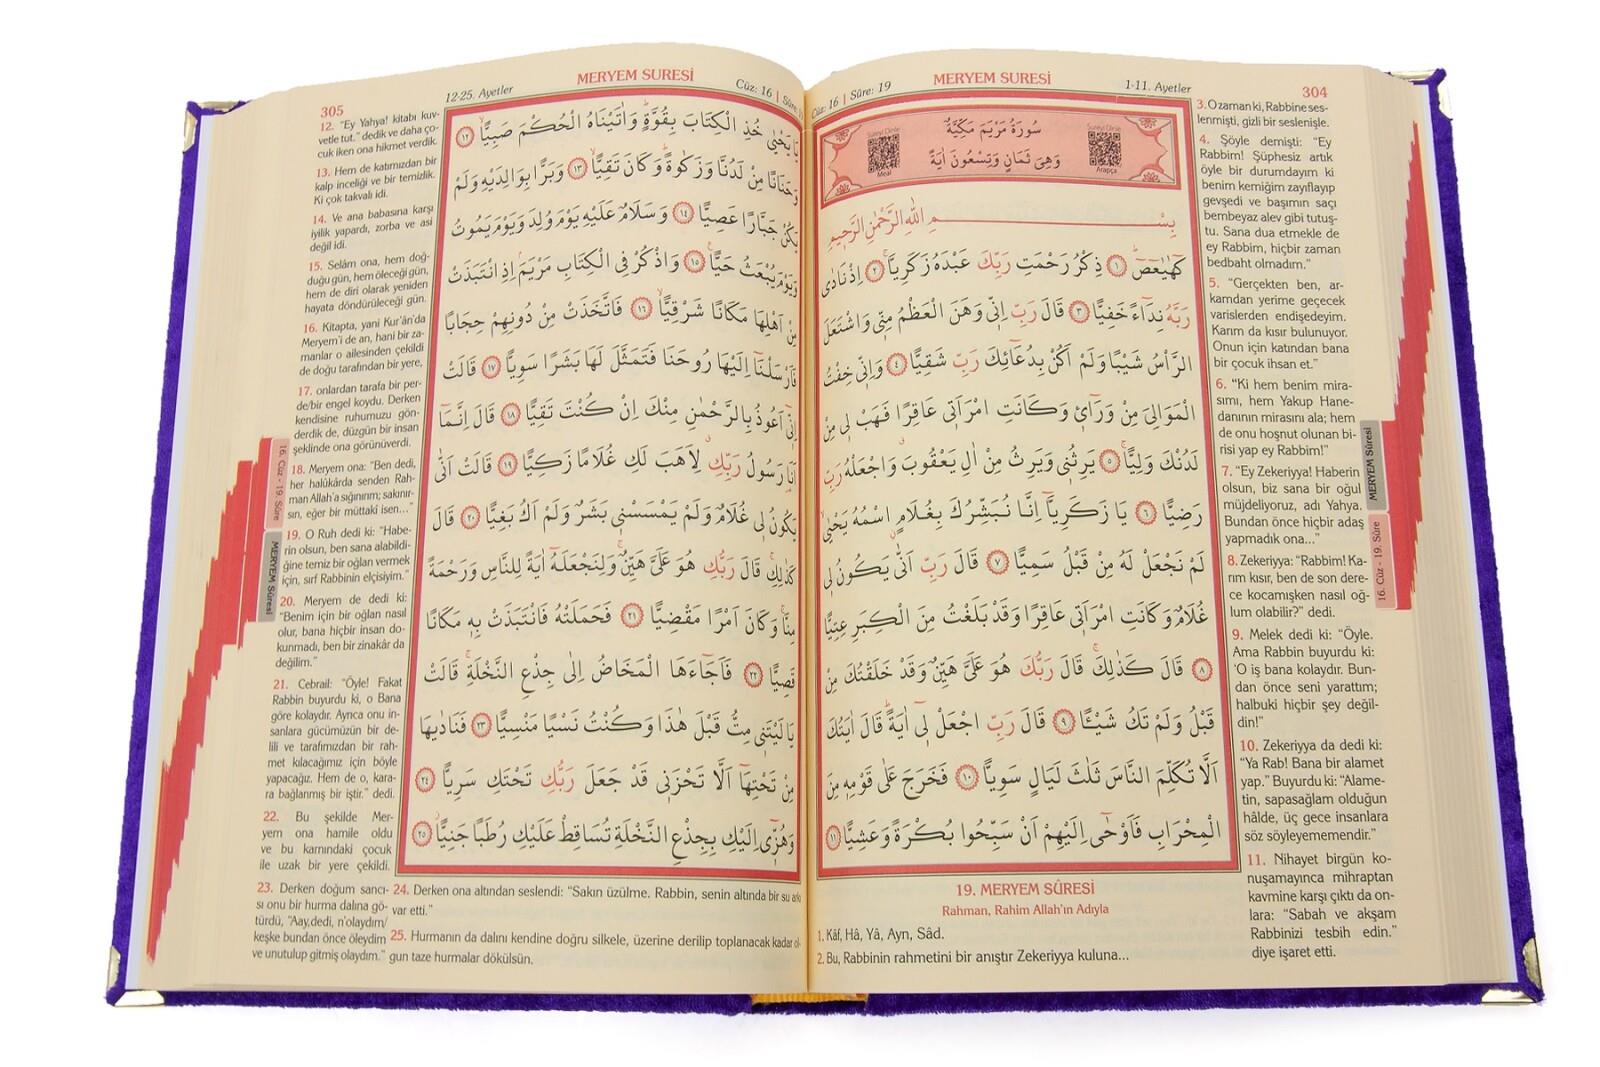 304
MERYEM SURESİ
1-11. Ayetler
Cüz: 16 | Sûre: 19
سُورَةُ مَرْيَمَ مَكِّيَّةٌ
وَهِيَ ثَمَانٍ وَتِسْعُونَ اٰيَةً
Sureyi Dinle
Arapça
Sureyi Dinle
Meal
بِسْــــــــمِ اللهِ الرَّحْمٰنِ الرَّحِيمِ
كٓهٰيٰعٓصٓ ﴿١﴾ ذِكْرُ رَحْمَتِ رَبِّكَ عَبْدَهُ زَكَرِيَّا ﴿٢﴾ اِذْ نَادٰى
رَبَّهُ نِدَٓاءً خَفِيًّا ﴿٣﴾ قَالَ رَبِّ اِنّ۪ي وَهَنَ الْعَظْمُ مِنّ۪ي وَاشْتَعَلَ
الرَّأْسُ شَيْبًا وَلَمْ اَكُنْ بِدُعَٓائِكَ رَبِّ شَقِيًّا ﴿٤﴾ وَاِنّ۪ي خِفْتُ
الْمَوَالِيَ مِنْ وَرَٓاء۪ي وَكَانَتِ امْرَاَت۪ي عَاقِرًا فَهَبْ ل۪ي مِنْ
لَدُنْكَ وَلِيًّا ﴿٥﴾ يَرِثُن۪ي وَيَرِثُ مِنْ اٰلِ يَعْقُوبَ وَاجْعَلْهُ رَبِّ
رَضِيًّا ﴿٦﴾ يَا زَكَرِيَّٓا اِنَّا نُبَشِّرُكَ بِغُلَامٍ اسْمُهُ يَحْيٰى
لَمْ نَجْعَلْ لَهُ مِنْ قَبْلُ سَمِيًّا ﴿٧﴾ قَالَ رَبِّ اَنّٰى يَكُونُ ل۪ي
غُلَامٌ وَكَانَتِ امْرَاَت۪ي عَاقِرًا وَقَدْ بَلَغْتُ مِنَ الْكِبَرِ عِتِيًّا
﴿٨﴾ قَالَ كَذٰلِكَ قَالَ رَبُّكَ هُوَ عَلَيَّ هَيِّنٌ وَقَدْ خَلَقْتُكَ مِنْ
قَبْلُ وَلَمْ تَكُ شَيْـًٔا ﴿٩﴾ قَالَ رَبِّ اجْعَلْ ل۪ٓي اٰيَةً قَالَ اٰيَتُكَ
اَلَّا تُكَلِّمَ النَّاسَ ثَلٰثَ لَيَالٍ سَوِيًّا ﴿١٠﴾ فَخَرَجَ عَلٰى قَوْمِه۪ مِنَ
الْمِحْرَابِ فَاَوْحٰٓى اِلَيْهِمْ اَنْ سَبِّحُوا بُكْرَةً وَعَشِيًّا ﴿١١﴾
19. MERYEM SÛRESİ
Rahman, Rahim Allah'ın Adıyla
1. Kâf, Hâ, Yâ, Ayn, Sâd.
2. Bu, Rabbinin rahmetini bir anıştır Zekeriyya kuluna...
3. O zaman ki, Rabbine ses-
lenmişti, gizli bir seslenişle.
4. Şöyle demişti: "Ey
Rabbim! Şüphesiz artık
öyle bir durumdayım ki
benim kemiğim zayıflayıp
gevşedi ve başımın saçı
bembeyaz alev gibi tutuş-
tu. Sana dua etmekle de
ey Rabbim, hiçbir zaman
bedbaht olmadım."
5. "Gerçekten ben, ar-
kamdan yerime geçecek
varislerden endişedeyim.
Karım da kısır bulunuyor.
Onun için katından bana
bir çocuk ihsan et."
6. "Ki hem benim mira-
sımı, hem Yakup Hane-
danının mirasını ala; hem
de onu hoşnut olunan bi-
risi yap ey Rabbim!"
7. "Ey Zekeriyya! Haberin
olsun, biz sana bir oğul
müjdeliyoruz, adı Yahya.
Bundan önce hiçbir adaş
yapmadık ona..."
8. Zekeriyya: "Rabbim! Ka-
rım kısır, ben de son dere-
ce kocamışken nasıl oğ-
lum olabilir?" dedi.
9. Melek dedi ki: "Öyle.
Ama Rabbin buyurdu ki:
'O iş bana kolaydır. Bun-
dan önce seni yarattım;
halbuki hiçbir şey değil-
din!"
10. Zekeriyya da dedi ki:
"Ya Rab! Bana bir alamet
yap." Buyurdu ki: "Alame-
tin, sapasağlam olduğun
hâlde, üç gece insanlara
söz söyleyememendir."
11. Nihayet birgün ko-
nuşamayınca mihraptan
kavmine karşı çıktı da on-
lara: "Sabah ve akşam
Rabbinizi tesbih edin."
diye işaret etti.
MERYEM Sûresi
16. Cüz - 19. Sûre
305
12-25. Ayetler
MERYEM SURESİ
Cüz: 16 | Sûre:
يَا يَحْيٰى خُذِ الْكِتَابَ بِقُوَّةٍ وَاٰتَيْنَاهُ الْحُكْمَ صَبِيًّا ﴿١٢﴾
وَحَنَانًا مِنْ لَدُنَّا وَزَكٰوةً وَكَانَ تَقِيًّا ﴿١٣﴾ وَبَرًّا بِوَالِدَيْهِ وَلَمْ
يَكُنْ جَبَّارًا عَصِيًّا ﴿١٤﴾ وَسَلَامٌ عَلَيْهِ يَوْمَ وُلِدَ وَيَوْمَ يَمُوتُ
وَيَوْمَ يُبْعَثُ حَيًّا ﴿١٥﴾ وَاذْكُرْ فِي الْكِتَابِ مَرْيَمَ اِذِ انْتَبَذَتْ
مِنْ اَهْلِهَا مَكَانًا شَرْقِيًّا ﴿١٦﴾ فَاتَّخَذَتْ مِنْ دُونِهِمْ حِجَابًا
فَاَرْسَلْنَٓا اِلَيْهَا رُوحَنَا فَتَمَثَّلَ لَهَا بَشَرًا سَوِيًّا ﴿١٧﴾ قَالَتْ
اِنّ۪ٓي اَعُوذُ بِالرَّحْمٰنِ مِنْكَ اِنْ كُنْتَ تَقِيًّا ﴿١٨﴾ قَالَ اِنَّمَٓا
اَنَا رَسُولُ رَبِّكِ لِاَهَبَ لَكِ غُلَامًا زَكِيًّا ﴿١٩﴾ قَالَتْ اَنّٰى
يَكُونُ ل۪ي غُلَامٌ وَلَمْ يَمْسَسْن۪ي بَشَرٌ وَلَمْ اَكُ بَغِيًّا ﴿٢٠﴾ قَالَ
كَذٰلِكِ قَالَ رَبُّكِ هُوَ عَلَيَّ هَيِّنٌ وَلِنَجْعَلَهُٓ اٰيَةً لِلنَّاسِ وَرَحْمَةً
مِنَّا وَكَانَ اَمْرًا مَقْضِيًّا ﴿٢١﴾ فَحَمَلَتْهُ فَانْتَبَذَتْ بِه۪ مَكَانًا
قَصِيًّا ﴿٢٢﴾ فَاَجَٓاءَهَا الْمَخَاضُ اِلٰى جِذْعِ النَّخْلَةِ قَالَتْ
يَا لَيْتَن۪ي مِتُّ قَبْلَ هٰذَا وَكُنْتُ نَسْيًا مَنْسِيًّا ﴿٢٣﴾ فَنَادٰيهَا
مِنْ تَحْتِهَٓا اَلَّا تَحْزَن۪ي قَدْ جَعَلَ رَبُّكِ تَحْتَكِ سَرِيًّا ﴿٢٤﴾
وَهُزّ۪ٓي اِلَيْكِ بِجِذْعِ النَّخْلَةِ تُسَاقِطْ عَلَيْكِ رُطَبًا جَنِيًّا ﴿٢٥﴾
12. "Ey Yahya! kitabı kuv-
vetle tut." dedik ve daha ço-
cuk iken ona hikmet verdik.
13. Hem de katımızdan bir
kalp inceliği ve bir temizlik.
Ki çok takvalı idi.
14. Ve ana babasına karşı
iyilik yapardı, zorba ve asi
değil idi.
15. Selâm ona, hem doğ-
duğu gün, hem öleceği gün,
hem de diri olarak yeniden
hayata döndürüleceği gün.
16. Kitapta, yani Kur'ân'da
Meryem'i de an, hani bir za-
manlar o ailesinden çekildi
de doğu tarafından bir yere,
17. onlardan tarafa bir per-
de/bir engel koydu. Derken
kendisine ruhumuzu gön-
derdik de, düzgün bir insan
şeklinde ona görünüverdi.
18. Meryem ona: "Ben dedi,
her halükârda senden Rah-
man Allah'a sığınırım; sakınır-
sın, eğer bir müttaki isen..."
19. O Ruh dedi ki: "Habe-
rin olsun, ben sana alabildi-
ğine temiz bir oğlan vermek
için, sırf Rabbinin elçisiyim."
20. Meryem de dedi ki:
"Benim için bir oğlan nasıl
olur, bana hiçbir insan do-
kunmadı, ben bir zinakâr da
değilim."
21. Cebrail: "Öyle! Fakat
Rabbin buyurdu ki, o Bana
göre kolaydır. Ayrıca onu in-
sanlara gücümüzün bir de-
lili ve tarafımızdan bir rah-
met kılacağımız için böyle
yapacağız. Hem de o, kara-
ra bağlanmış bir iştir." dedi.
22. Bu şekilde Mer-
yem ona hamile oldu
ve bu karnındaki çocuk
ile uzak bir yere çekildi.
23. Derken doğum sancı-
sı onu bir hurma dalına gö-
türdü, "Aay,dedi, n'olaydım/
keşke bundan önce öleydim
ve unutulup gitmiş olaydım."
24. Derken ona altından seslendi: "Sakın üzülme. Rabbin, senin altında bir su arkı
var etti."
25. Hurmanın da dalını kendine doğru silkele, üzerine derilip toplanacak kadar ol-
gun taze hurmalar dökülsün.
16. Cüz - 19. Sûre
MERYEM Sûresi